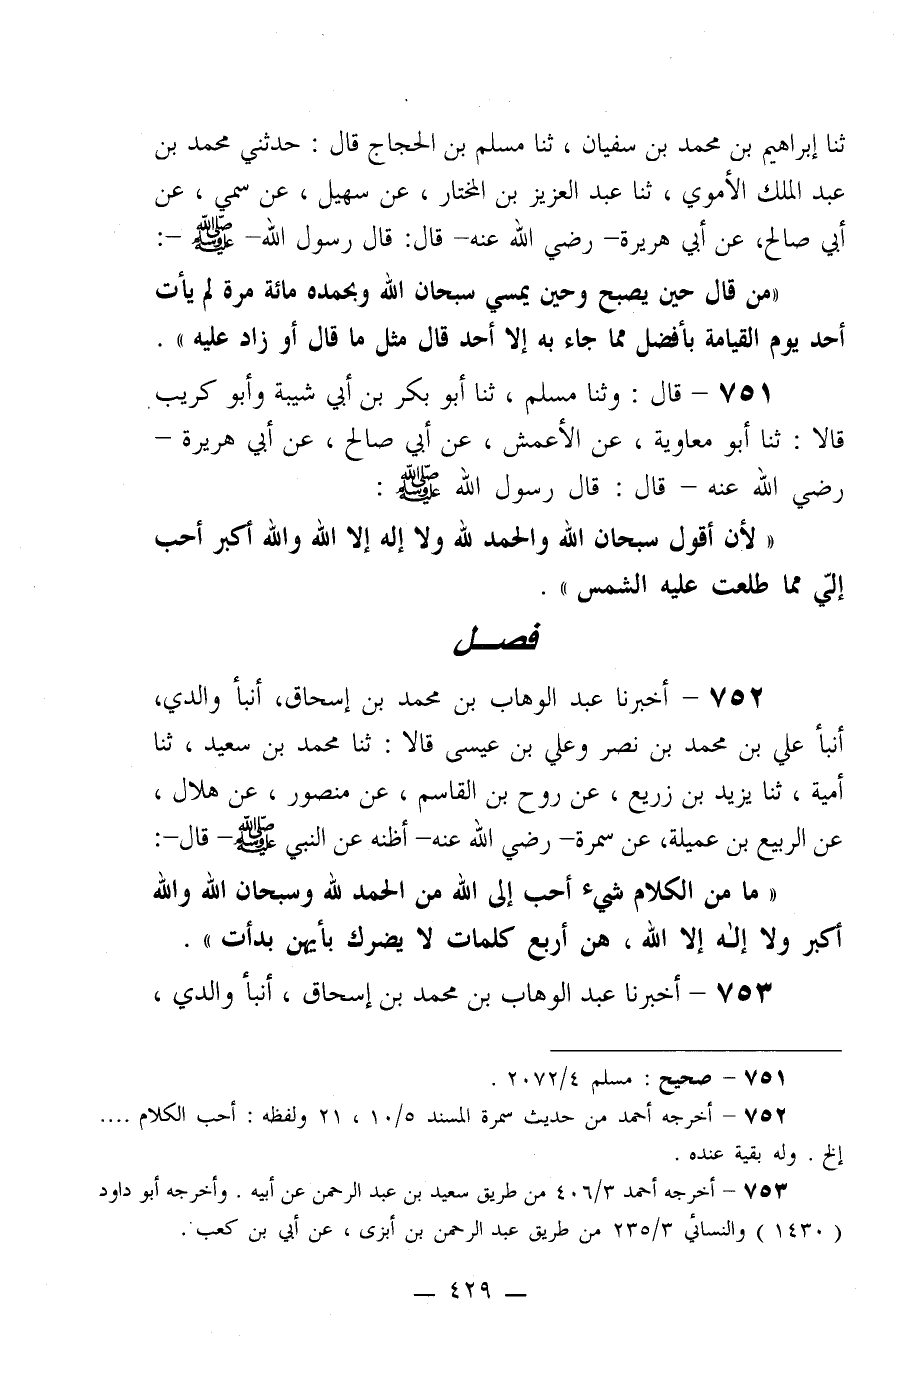 ثنا إبراهيم بن محمد بن سفيان ، ثنا مسلم بن الحجاج قال : حدثني محمد بن
عبد الملك الأموي ، ثنا عبد العزيز بن المختار ، عن سهيل ، عن سمي ، عن
أبي صالح، عن أبي هريرة– رضي الله عنه– قال: قال رسول الله– ﷺ –:
«من قال حين يصبح وحين يمسي سبحان الله وبحمده مائة مرة لم يأت
أحد يوم القيامة بأفضل مما جاء به إلا أحد قال مثل ما قال أو زاد عليه » .
٧٥١ – قال : وثنا مسلم ، ثنا أبو بكر بن أبي شيبة وأبو كريب
قالا : ثنا أبو معاوية ، عن الأعمش ، عن أبي صالح ، عن أبي هريرة –
رضي الله عنه – قال : قال رسول الله ﷺ :
« لأن أقول سبحان الله والحمد لله ولا إله إلا الله والله أكبر أحب
إليّ مما طلعت عليه الشمس » .
فصــل
٧٥٢ – أخبرنا عبد الوهاب بن محمد بن إسحاق، أنبأ والدي،
أنبأ علي بن محمد بن نصر وعلي بن عيسى قالا : ثنا محمد بن سعيد ، ثنا
أمية ، ثنا يزيد بن زريع ، عن روح بن القاسم ، عن منصور ، عن هلال ،
عن الربيع بن عميلة، عن سمرة– رضي الله عنه– أظنه عن النبي ﷺ– قال–:
« ما من الكلام شيء أحب إلى الله من الحمد لله وسبحان الله والله
أكبر ولا إله إلا الله ، هن أربع كلمات لا يضرك بأيهن بدأت » .
٧٥٣ – أخبرنا عبد الوهاب بن محمد بن إسحاق ، أنبأ والدي ،
٧٥١ – صحيح : مسلم ٢٠٧٢/٤ .
٧٥٢ – أخرجه أحمد من حديث سمرة المسند ١٠/٥ ، ٢١ ولفظه : أحب الكلام ....
إلخ . وله بقية عنده .
٧٥٣ – أخرجه أحمد ٤٠٦/٣ من طريق سعيد بن عبد الرحمن عن أبيه . وأخرجه أبو داود
( ١٤٣٠ ) والنسائي ٢٣٥/٣ من طريق عبد الرحمن بن أبزى ، عن أبي بن كعب .
– ٤٢٩ –